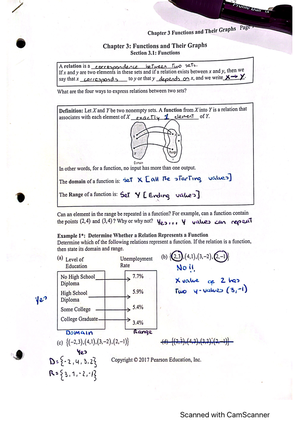 Chapter 3 Functions and Their Graphs Page
Chapter 3: Functions and Their Graphs
Section 3.1: Functions
A relation is a correspondence between two sets.
If x and y are two elements in these sets and if a relation exists between x and y, then we
say that x corresponds to y or that y depends on x, and we write X→Y
What are the four ways to express relations between two sets?
Definition: Let X and Y be two nonempty sets. A function from X into Y is a relation that
associates with each element of X exactly 1 element of Y.
Domain
In other words, for a function, no input has more than one output.
The domain of a function is: Set X [all the starting values]
The Range of a function is: Set Y [Ending values]
Can an element in the range be repeated in a function? For example, can a function contain
the points (2,4) and (3,4)? Why or why not? Yes... Y values can repeat
Example 1*: Determine Whether a Relation Represents a Function
Determine which of the following relations represent a function. If the relation is a function,
then state its domain and range.
(a) Level of Education Unemployment Rate
(b) {(2,3),(4,1),(3,-2),(2,-1)}
No!!
X value of 2 has
Two y-values (3,-1)
Yes
No High School Diploma 7.7%
High School Diploma 5.9%
Some College 5.4%
College Graduate 3.4%
Domain Range
(c) {(-2,3),(4,1),(3,-2),(2,-1)}
Yes
D={-2,4,3,2}
R={3,1,-2,-1}
Copyright © 2017 Pearson Education, Inc.
Scanned with CamScanner